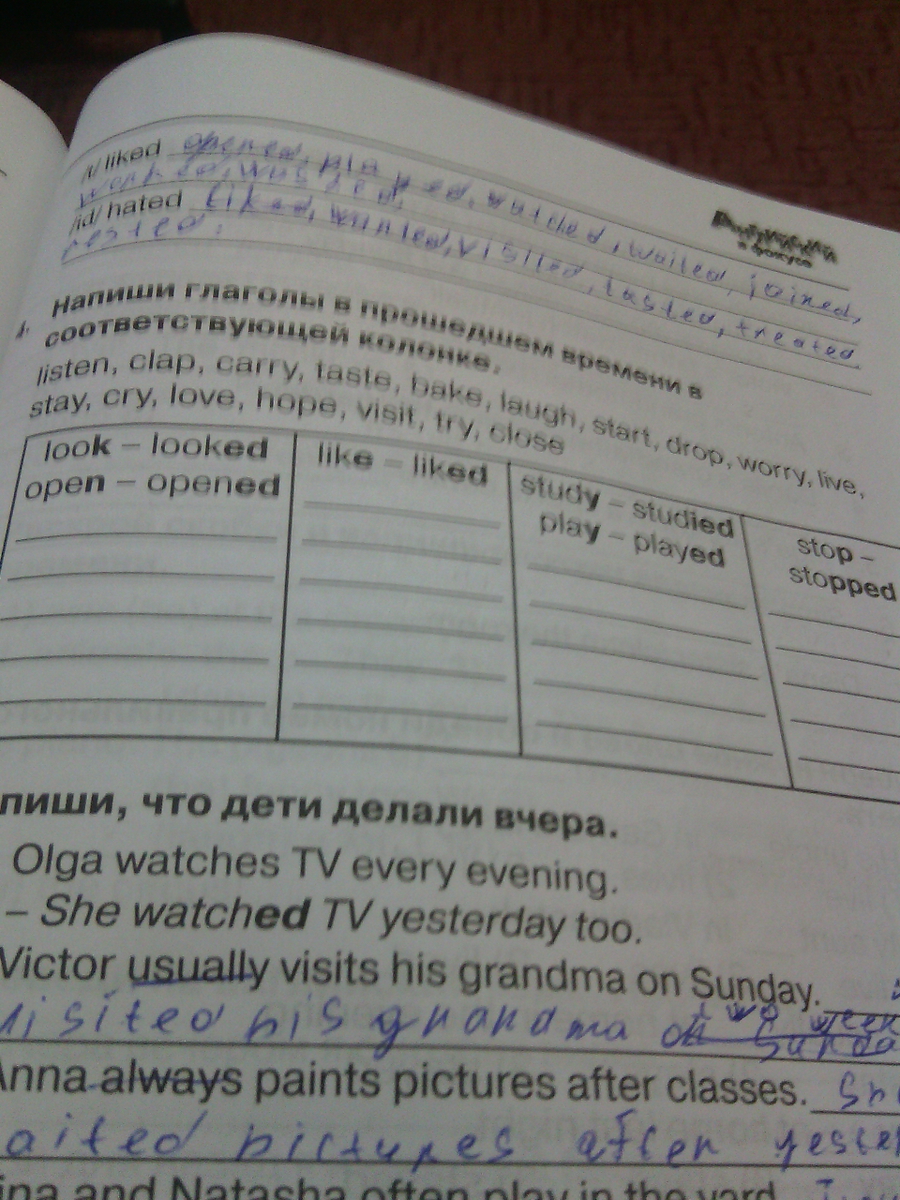 /t/ liked opened, played, watched, waited, joined,
worked, wasted,
/id/ hated liked, wanted, visited, tasted, treated
rested.
Английский
в фокусе
Напиши глаголы в прошедшем времени в
соответствующей колонке.
listen, clap, carry, taste, bake, laugh, start, drop, worry, live,
stay, cry, love, hope, visit, try, close
look – looked
open – opened
like – liked
study – studied
play – played
stop –
stopped
пиши, что дети делали вчера.
Olga watches TV every evening.
– She watched TV yesterday too.
Victor usually visits his grandma on Sunday.
visited his grandma on
Anna always paints pictures after classes. Sh
aited pictures after yester
ina and Natasha often play in the yard.